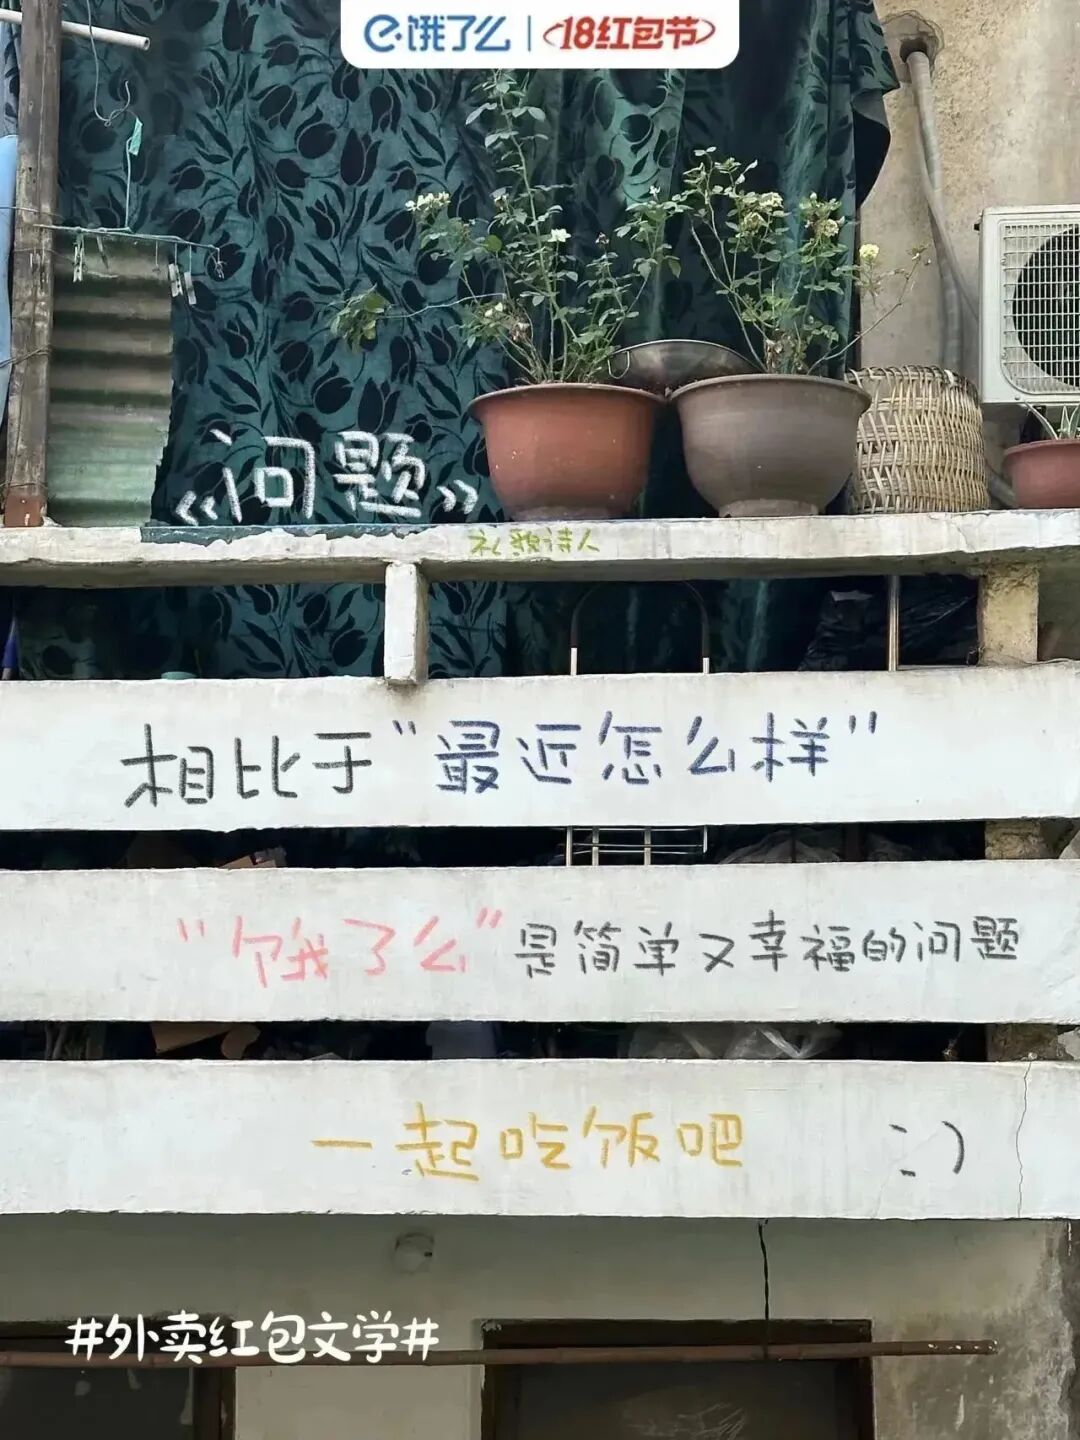 饿了么 | 18红包节
《问题》
礼貌诗人
相比于“最近怎么样”
“饿了么”是简单又幸福的问题
一起吃饭吧 :)
#外卖红包文学#